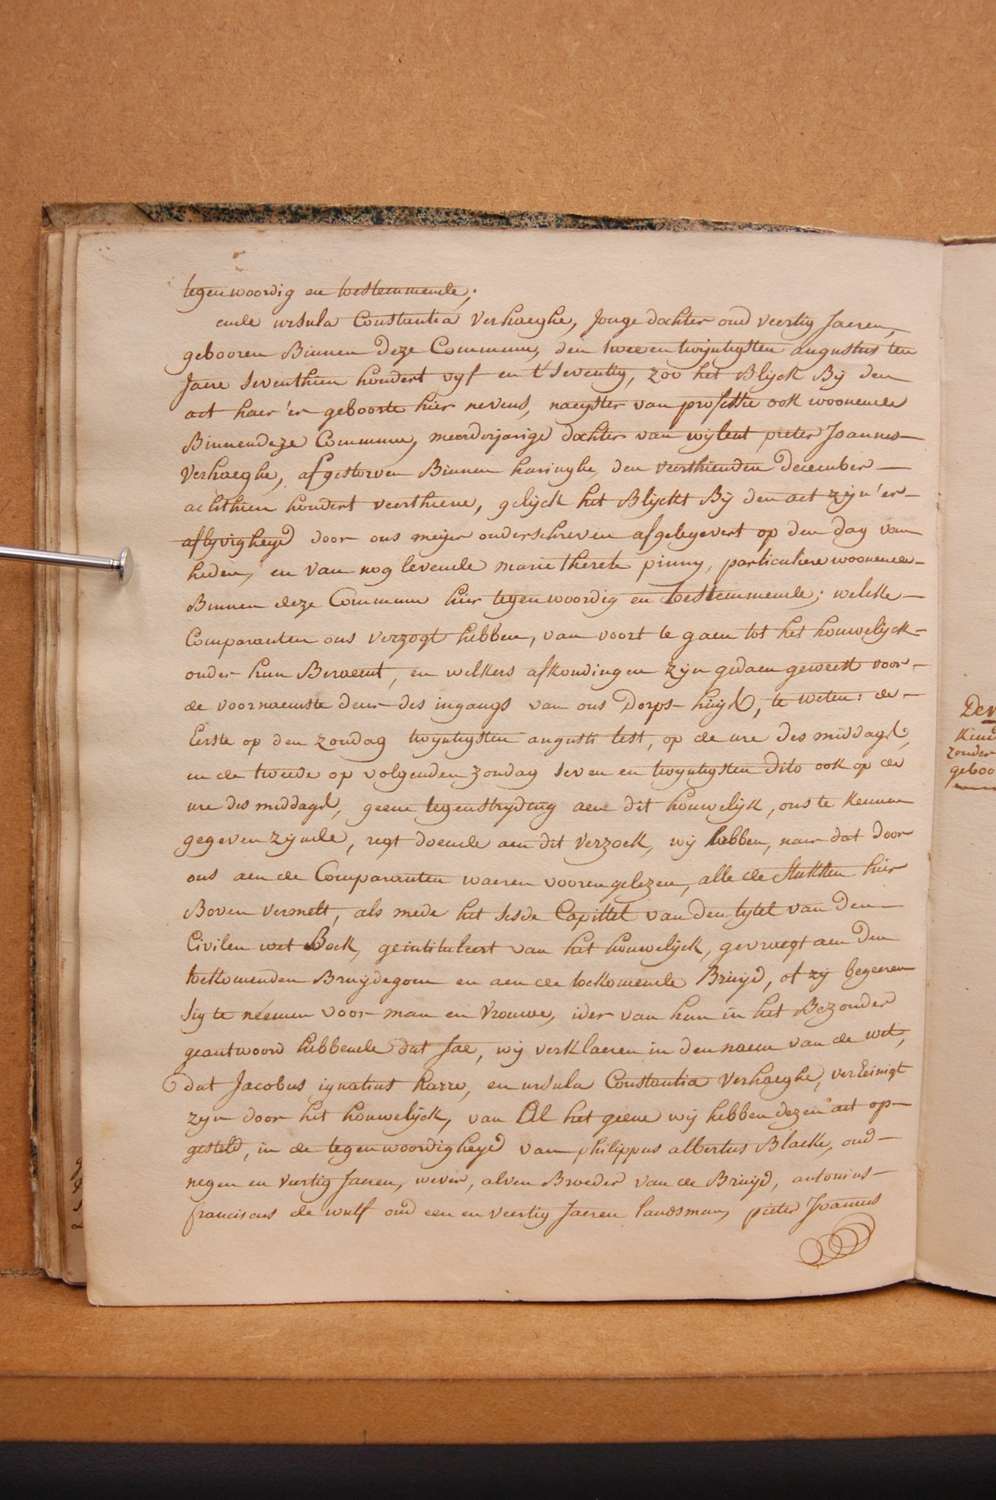 tegenwoordig en toestemmende;
ende ursula Constantia Verhaeghe, Jonge dochter oud veertig Jaeren,
gebooren Binnen deze Commune, den tweentwijntigsten augustus ten
Jaere seventhien hondert vyf en t'seventig, zoo het Blijck Bij den
act haer'er geboorte hier nevens, naeijster van professie ook woonende
Binnen deze Commune, meerderjarige dochter van wijlent pieter Joannes
Verhaeghe, afgestorven Binnen haringhe den veerthienden December
achthien hondert veerthiene, gelijck het Blijckt Bij den act zijn'er
aflyvigheyd door ons meijer onderschreven afgelegevert op den dag van
heden, en van nog levende marie therese pinny, particuliere woonende
Binnen deze Commune hier tegenwoordig en toestemmende; welcke
Comparanten ons verzogt hebben, van voort te gaen tot het houwelijck
onder hun Beraemt, en welkers afkondingen zijn gedaen geweest voor
de voornaemste deur des ingangs van ons Dorps-huijs, te weten: de
Eerste op den zondag twijntigsten augusti lest, op de ure des middags,
en de tweede op volgenden zondag seven en twyntigsten dito ook op de
ure des middags, geene tegenstryding aen dit houwelijk, ons te kennen
gegeven zijnde, regt doende aen dit verzoek, wij hebben, naer dat door
ons aen de Comparanten waeren voorengelezen, alle de stukken hier
Boven vermelt, als mede het sesde Capittel van den tytel van den
Civilen wet Boek, geintituleert van het houwelijck, gevraegt aen den
toekomenden Bruijdegom en aen de toekomende Bruijd, of zij begeeren
sig te neemen voor man en vrouwe, ider van hun in het Bezonder
geantwoord hebbende dat Jae, wij verklaeren in den naem van de wet,
dat Jacobus ignatius Karre, en ursula Constantia Verhaeghe, vereinigt
zyn door het houwelijck, van Al het geene wij hebben dezen act op-
gesteld, in de tegenwoordigheyd van philippus albertus Blaeke, oud
negen en veertig Jaeren, wever, alven Broeder van de Bruijd, antonius
franciscus de wulf oud een en veertig Jaeren landsman, pieter Joannes
Der
Kind
zonder
geboo